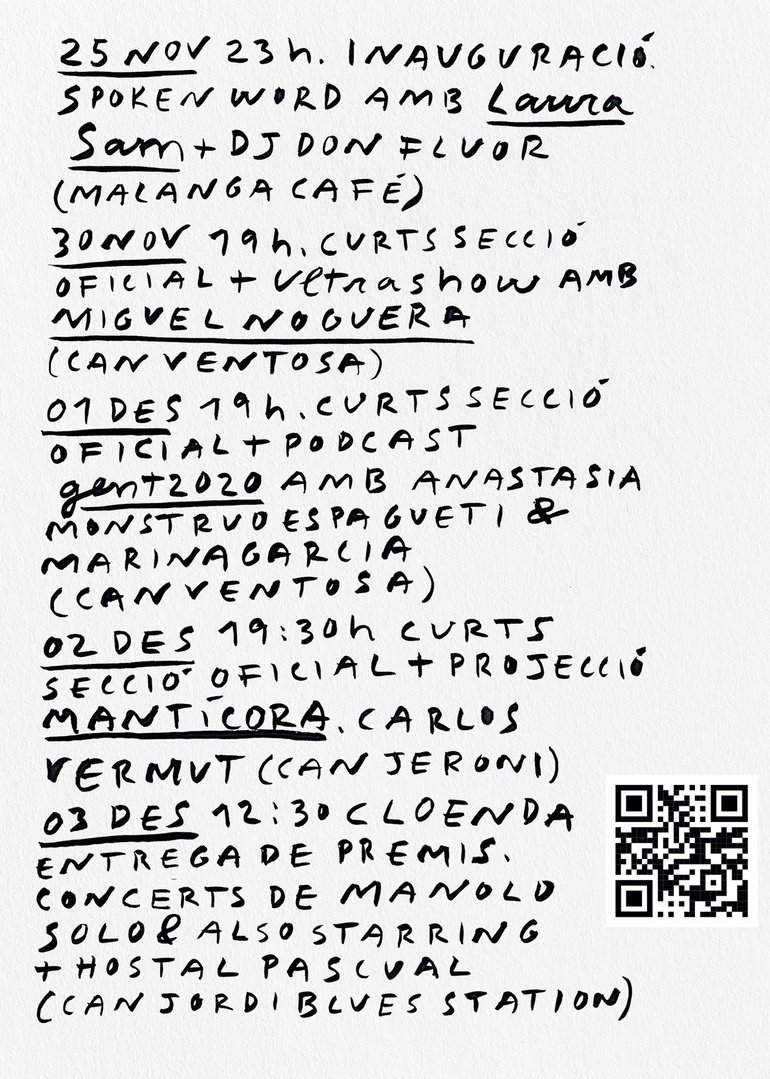 25 NOV 23h. INAUGURACIÓ.
SPOKEN WORD AMB Laura
Sam + DJ DON FLUOR
(MALANGA CAFÉ)
30 NOV 19h. CURTS SECCIÓ
OFICIAL + Ultrashow AMB
MIGUEL NOGUERA
(CAN VENTOSA)
01 DES 19h. CURTS SECCIÓ
OFICIAL + PODCAST
gent2020 AMB ANASTASIA
MONSTRUO ESPAGUETI &
MARINA GARCIA
(CAN VENTOSA)
02 DES 19:30h CURTS
SECCIÓ OFICIAL + PROJECCIÓ
MANTÍCORA. CARLOS
VERMUT (CAN JERONI)
03 DES 12:30 CLOENDA
ENTREGA DE PREMIS.
CONCERTS DE MANOLO
SOLO & ALSO STARRING
+ HOSTAL PASCUAL
(CAN JORDI BLUES STATION)